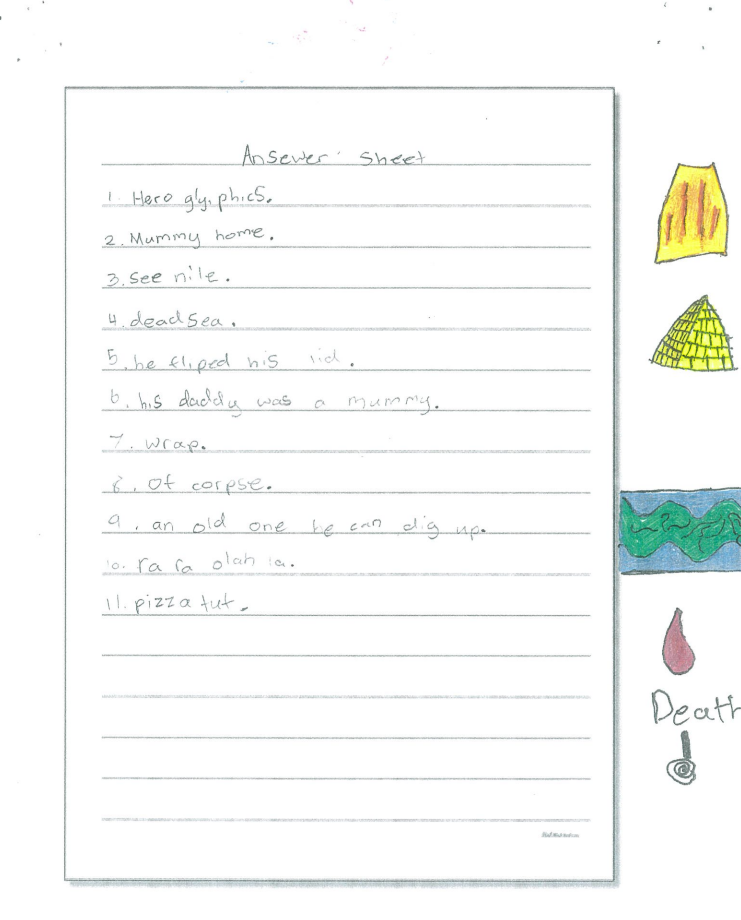 Ansewer sheet
1. Hero glyiphics.
2. Mummy home.
3. See nile.
4. dead sea.
5. he fliped his lid.
6. his daddy was a mummy.
7. wrap.
8. Of corpse.
9. an old one he can dig up.
10. ra ra olah la.
11. pizza tut.
Death